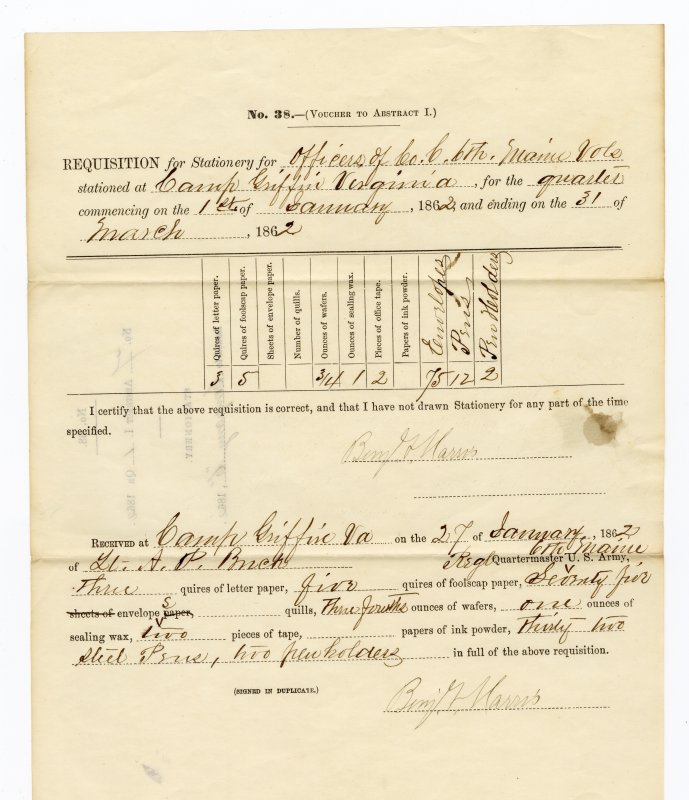 No. 38.—(Voucher to Abstract I.)
REQUISITION for Stationery for Officers of Co. C. 6th. Maine Vols
stationed at Camp Griffin Virginia, for the quarter
commencing on the 1st of January, 1862, and ending on the 31 of
March, 1862
Quires of letter paper.
Quires of foolscap paper.
Sheets of envelope paper.
Number of quills.
Ounces of wafers.
Ounces of sealing wax.
Pieces of office tape.
Papers of ink powder.
Envelopes
Pens
Pen Holders
3 5 3/4 1 2 75 12 2
I certify that the above requisition is correct, and that I have not drawn Stationery for any part of the time
specified.
Benj. F. Harris
Received at Camp Griffin Va on the 27 of January, 1862
of Lt. A. P. Regt Quartermaster U. S. Army, 6th Maine
Three quires of letter paper, five quires of foolscap paper, seventy five
sheets of envelope s paper, quills, three fourths ounces of wafers, one ounces of
sealing wax, two pieces of tape, papers of ink powder, thirty two
steel Pens, two penholders in full of the above requisition.
(SIGNED IN DUPLICATE.)
Benj. F. Harris